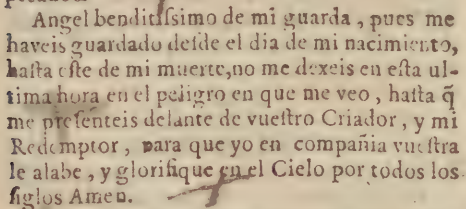 Angel benditissimo de mi guarda , pues me
haveis guardado desde el dia de mi nacimiento,
hasta este de mi muerte,no me dexeis en esta ul-
tima hora en el peligro en que me veo , hasta q̃
me presenteis delante de vuestro Criador , y mi
Redemptor , para que yo en compañia vuestra
le alabe , y glorifique en el Cielo por todos los
siglos Amen.